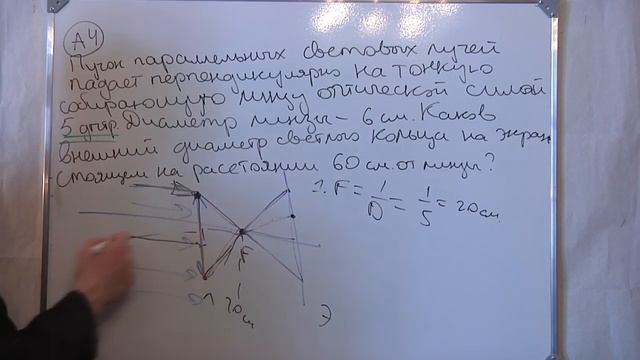 А4
Пучок параллельных световых лучей
падает перпендикулярно на тонкую
собирающую линзу оптической силой
5 дптр. Диаметр линзы – 6 см. Каков
внешний диаметр светлого кольца на экран
стоящем на расстоянии 60 см. от линзы?
1. F = 1/D = 1/5 = 20 см.
F
20 см
Э